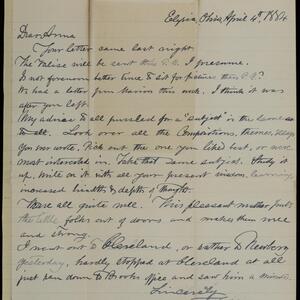 Elyria, Ohio, April 4th, 1884
Dear Anna
Your letter came last night.
The valise will be sent this P.M. I presume.
Is not forenoon better time to sit for pictures than P.M.?
We had a letter from Marion this week. I think it was
after you left.
My advice to all puzzled for a "subject" is the same
to all. Look over all the Compositions, themes, essays
you ever wrote. Pick out the one you liked best, or were
most interested in. Take that same subject. Study it
up, write on it with all your present wisdom, learning,
increased health & depth of thought.
There all quite well. This pleasant weather puts
the little folks out of doors and makes them nice
and strong.
I went out to Cleveland, or rather to Newberg
yesterday, hardly stopped at Cleveland at all
just ran down to Brooks office and saw him a minute.
Sincerely